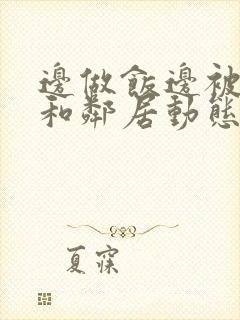 邊做飯邊被
和鄰居動態
夏寐